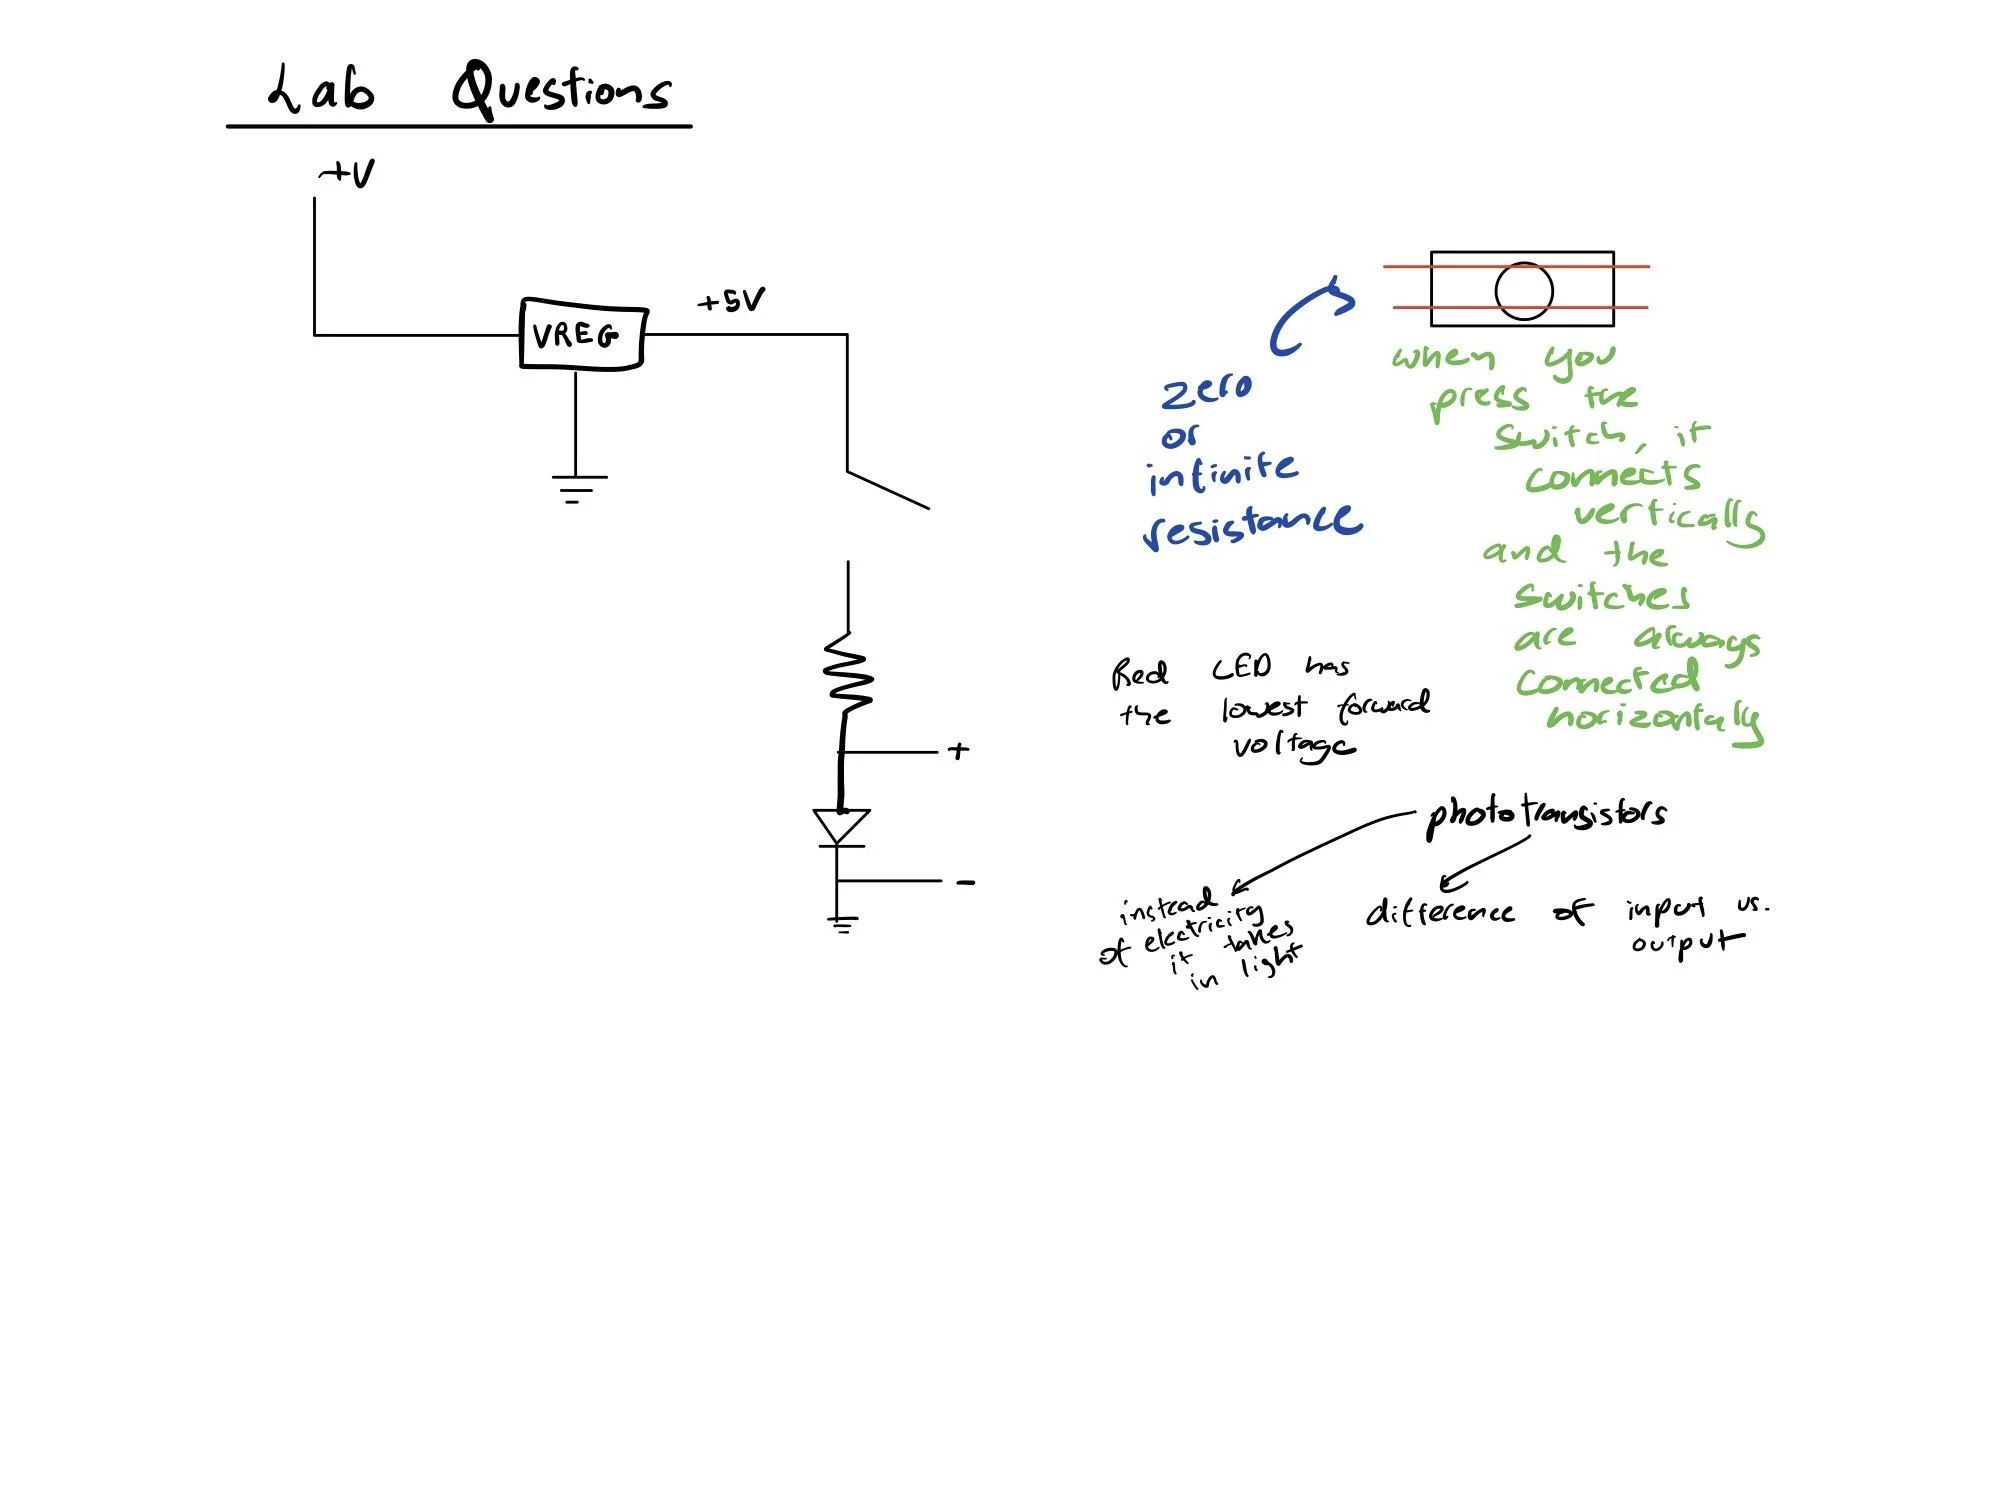 Lab Questions
+V
VREG
+5V
+
-
zero
or
infinite
resistance
when you
press the
switch, it
connects
vertically
and the
switches
are always
connected
horizontally
Red LED has
the lowest forward
voltage
phototransistors
instead
of electricity
it takes
in light
difference of input vs.
output